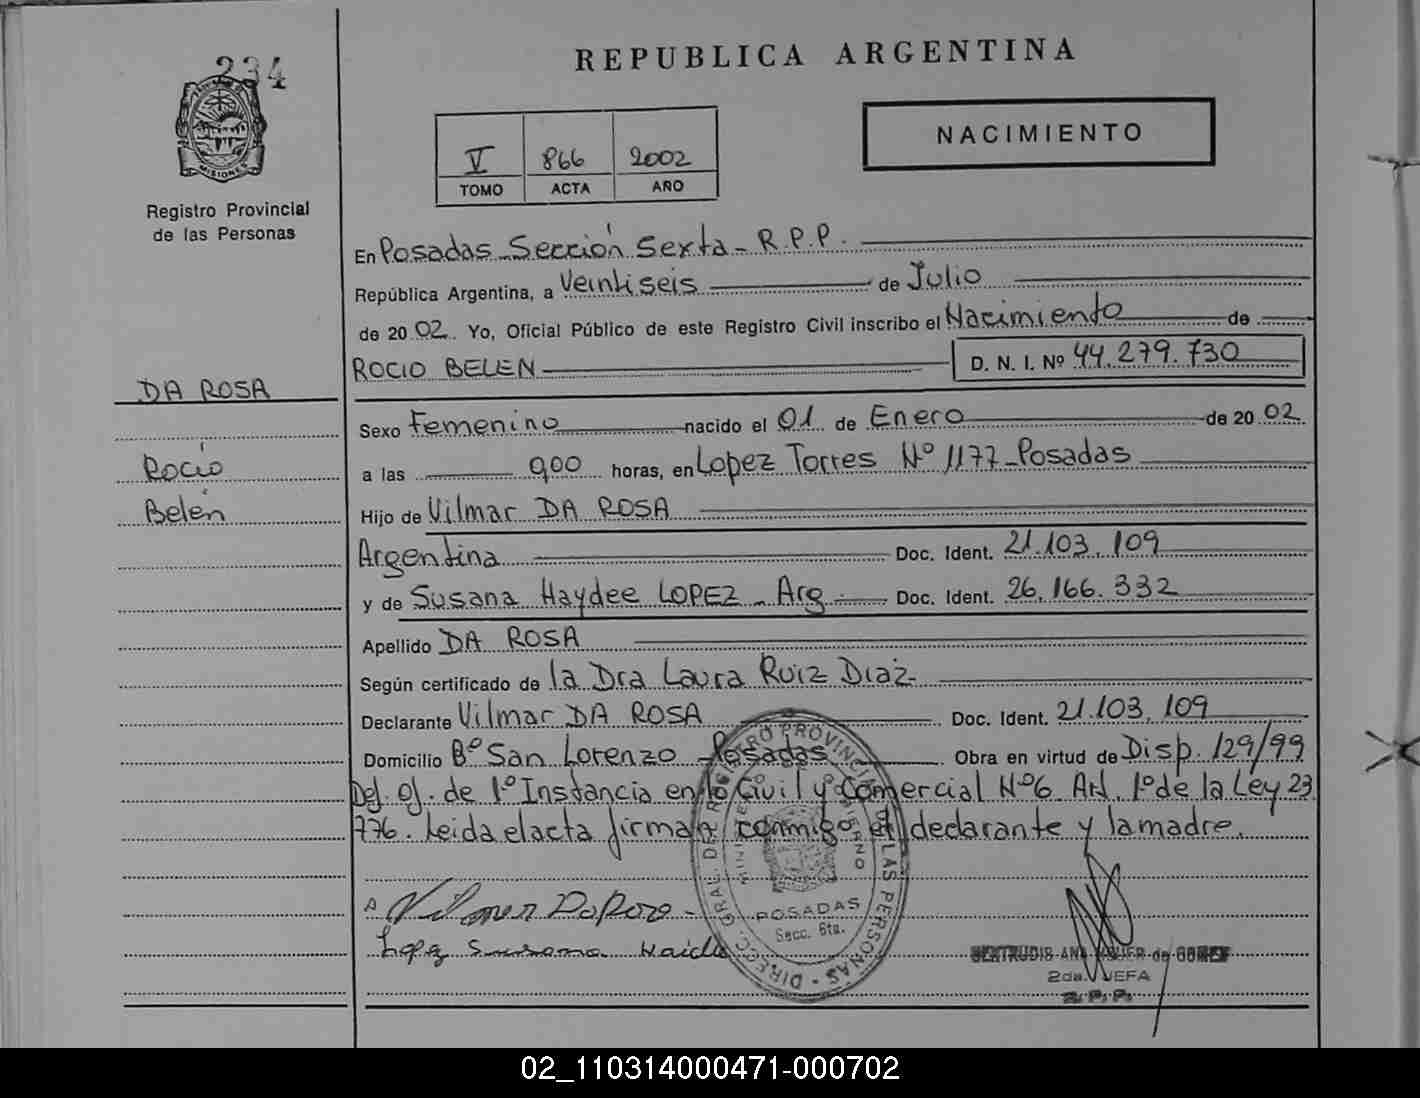 234
MISIONES
Registro Provincial
de las Personas
REPUBLICA ARGENTINA
V 866 2002
TOMO ACTA AÑO
NACIMIENTO
En Posadas - Sección Sexta - R.P.P.
República Argentina, a Veintiseis de Julio
de 20 02. Yo, Oficial Público de este Registro Civil inscribo el Nacimiento de
ROCIO BELEN D. N. I. Nº 44.279.730
DA ROSA
Rocío
Belén
Sexo Femenino nacido el 01 de Enero de 20 02
a las 900 horas, en Lopez Torres Nº 1177 - Posadas
Hijo de Vilmar DA ROSA
Argentina Doc. Ident. 21.103.109
y de Susana Haydee LOPEZ - Arg. Doc. Ident. 26.166.332
Apellido DA ROSA
Según certificado de la Dra Laura Ruiz Diaz-
Declarante Vilmar DA ROSA Doc. Ident. 21.103.109
Domicilio Bº San Lorenzo - Posadas Obra en virtud de Disp. 129/99
Def. Of. de 1º Instancia en lo Civil y Comercial Nº6 Art. 1º de la Ley 23
776. Leida el acta firman conmigo el declarante y la madre.
DIRECC. GRAL. DEL REGISTRO PROVINCIAL DE LAS PERSONAS
MINISTERIO GOBIERNO
POSADAS
Secc. 6ta.
Lopez Susana Haide
GERTRUDIS ANA de GOMEZ
2da. JEFA
R.P.P.
02_110314000471-000702